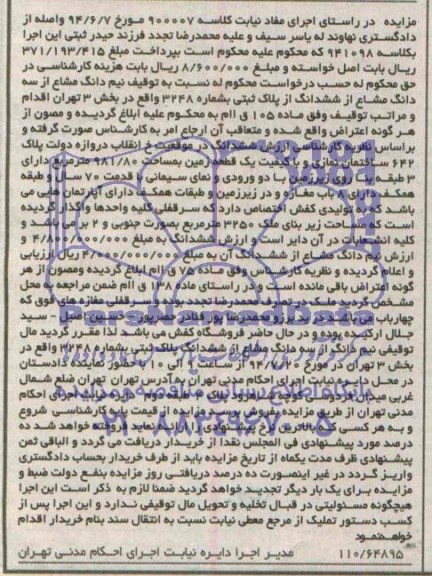 مزایده در راستای اجرای مفاد نیابت کلاسه ۹۰۰۰۰۷ مورخ ۹۴/۶/۷ واصله از
دادگستری نهاوند له یاسر سیف و علیه محمدرضا تجدد فرزند حیدر ثبتی این اجرا
بکلاسه ۹۴۱۰۹۸ که محکوم علیه محکوم است بپرداخت مبلغ ۳۷۱/۱۹۳/۴۱۵
ریال بابت اصل خواسته و مبلغ ۸/۶۰۰/۰۰۰ ریال بابت هزینه کارشناسی در
حق محکوم له حسب درخواست محکوم له نسبت به توقیف نیم دانگ مشاع از سه
دانگ مشاع از ششدانگ از پلاک ثبتی بشماره ۳۲۴۸ واقع در بخش ۳ تهران اقدام
و مراتب توقیف وفق ماده ۱۰۵ ق اام به محکوم علیه ابلاغ گردیده و مصون از
هر گونه اعتراض واقع شده و متعاقب آن ارجاع امر به کارشناس صورت گرفته و
براساس نظریه کارشناسی ارزش ششدانگ در موقعیت خ انقلاب دروازه دولت پلاک
۶۴۲ ساختمان تجاری و با کیفیت یک قطعه زمین بمساحت ۹۸۱/۸۰ مترمربع دارای
۳ طبقه بنا روی زیرزمین با دو ورودی و نمای سیمانی با قدمت ۷۰ سال و طبقه
همکف دارای ۸ باب مغازه و در زیرزمین و طبقات همکف دارای آپارتمان هایی می
باشد که به تولیدی کفش اختصاص دارد که سرقفلی کلیه واحدها واگذار گردیده
است که مساحت زیر بنای ملک ۳۲۵۰ مترمربع بصورت جنوبی و ۲ بر می باشد و
کلیه انشعابات در آن دایر است و ارزش ششدانگ به مبلغ
ارزش نیم دانگ مشاع از ششدانگ آن به مبلغ ریال ارزیابی
و اعلام گردیده و نظریه کارشناس وفق ماده ۷۵ ق اام ابلاغ گردیده ومصون از هر
گونه اعتراض باقی مانده است و در راستای ماده ۱۳۸ ق اام ضمن مراجعه به محل
مشخص گردید ملک در تصرف محمدرضا تجدد بوده و سرقفلی مغازه های فوق که
چهارباب می باشد در ید برزو محمدرضا پور حسین اصیل - سید
جلال ارکیده بوده و در حال حاضر فروشگاه کفش می باشد لذا مقرر گردید مال
توقیفی نیم دانگ از سه دانگ مشاع از ششدانگ پلاک ثبتی بشماره ۳۲۴۸ واقع در
بخش ۳ تهران در مورخ از ساعت ۹ الی ۱۰ با حضور نماینده دادستان
در محل دایره نیابت اجرای احکام مدنی تهران به آدرس تهران تهران ضلع شمال
غربی میدان طبقه دوم دایره نیابت اجرای احکام
مدنی تهران از طریق مزایده بفروش می رسد مزایده از قیمت پایه کارشناسی شروع
و به هر کسی که بالاترین نرخ پیشنهادی را ارایه نماید فروخته خواهد شد ده
درصد مورد پیشنهادی فی المجلس نقدا از خریدار دریافت می گردد و الباقی ثمن
پیشنهادی ظرف مدت یکماه از تاریخ مزایده باید از طرف خریدار بحساب دادگستری
واریز گردد در غیر اینصورت ده درصد دریافتی روز مزایده بنفع دولت ضبط و
مزایده برای یک بار دیگر تجدید خواهد گردید ضمنا لازم به ذکر است این اجرا
هیچگونه مسئولیتی در قبال تخلیه و تحویل مال توقیفی ندارد و این اجرا پس از
کسب دستور تملیک از مرجع معطی نیابت نسبت به انتقال سند بنام خریدار اقدام
خواهدنمود
۱۱۰/۶۴۸۹۵ مدیر اجرا دایره نیابت اجرای احکام مدنی تهران